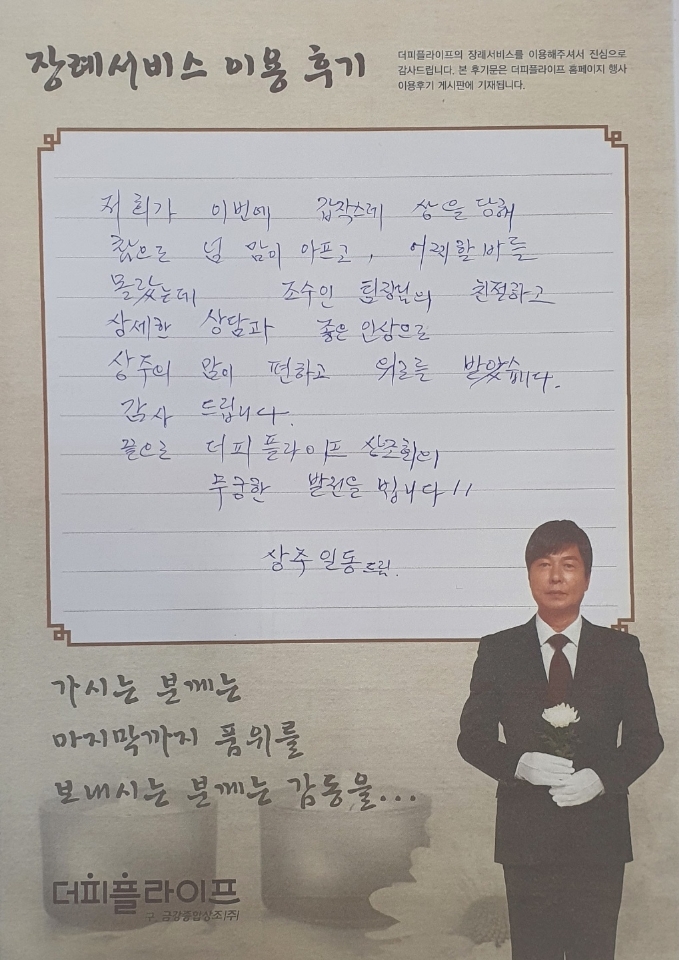 장례서비스 이용 후기
더피플라이프의 장례서비스를 이용해주셔서 진심으로
감사드립니다. 본 후기문은 더피플라이프 홈페이지 행사
이용후기 게시판에 기재됩니다.
저희가 이번에 갑작스레 상을 당해
참으로 넘 맘이 아프고, 어찌할바를
몰랐는데 조수인 팀장님의 친절하고
상세한 상담과 좋은 인상으로
상주의 맘이 편하고 위로를 받았습니다.
감사 드립니다.
끝으로 더피플라이프 상조회의
무궁한 발전을 빕니다!!
상주 일동 드림.
가시는 분께는
마지막까지 품위를
보내시는 분께는 감동을...
더피플라이프
구. 금강종합상조(주)